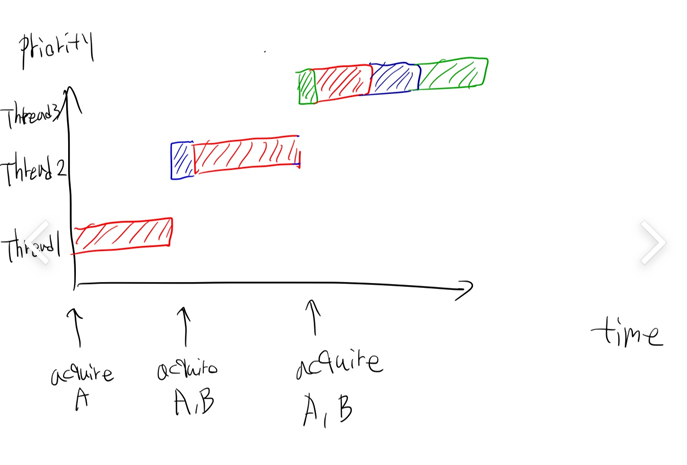 Priority
Thread3
Thread2
Thread1
acquire
A
acquire
A,B
acquire
A, B
time